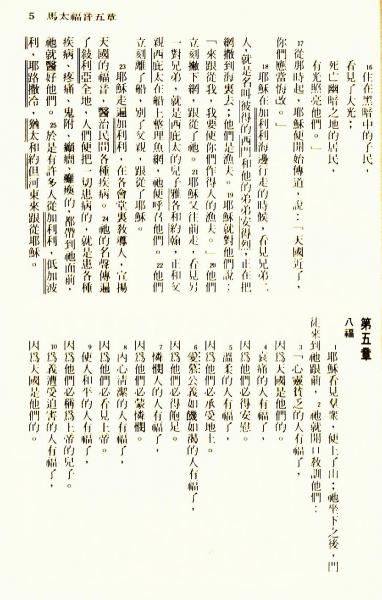 5 馬太福音五章
16 住在黑暗中的居民,
看見了大光;
死亡幽暗之地的居民,
有光照亮他們。」
17 從那時起,耶穌便開始傳道,說:「天國近了,
你們應當悔改。」
18 耶穌在加利利海邊行走的時候,看見兄弟二
人,就是名叫彼得的西門和他的弟弟安得烈,正在把
網撒到海裏去;他們是漁夫。19 耶穌就對他們說:
「來跟從我,我要使你們作得人的漁夫。」20 他們
立刻撇下網,跟從了祂。21 耶穌又往前走,看見另
一對兄弟,就是西庇太的兒子雅各和約翰,正和父
親西庇太在船上整理魚網,祂便呼召他們。22 他們
立刻離了船,別了父親,跟從了耶穌。
23 耶穌走遍加利利,在各會堂裏教導人,宣揚
天國的福音,醫治民間各種疾病。24 祂的名聲傳遍
了敍利亞全地,人們便把一切患病的,就是患各種
疾病、疼痛、鬼附、癲癇、癱瘓的,都帶到祂面前,
祂就醫好他們。25 於是有許多人從加利利、低加波
利、耶路撒冷、猶太和約但河東來跟從耶穌。
第五章
八福
1 耶穌看見羣衆,便上了山;祂坐下之後,門
徒來到祂跟前,2 祂就開口教訓他們:
3 「心靈貧乏的人有福了,
因爲天國是他們的。
4 哀痛的人有福了,
因爲他們必得安慰。
5 溫柔的人有福了,
因爲他們必承受地土。
6 愛慕公義如饑如渴的人有福了,
因爲他們必得飽足。
7 憐憫人的人有福了,
因爲他們必蒙憐憫。
8 內心清潔的人有福了,
因爲他們必看見上帝。
9 使人和平的人有福了,
因爲他們必稱爲上帝的兒子。
10 爲義遭受迫害的人有福了,
因爲天國是他們的。